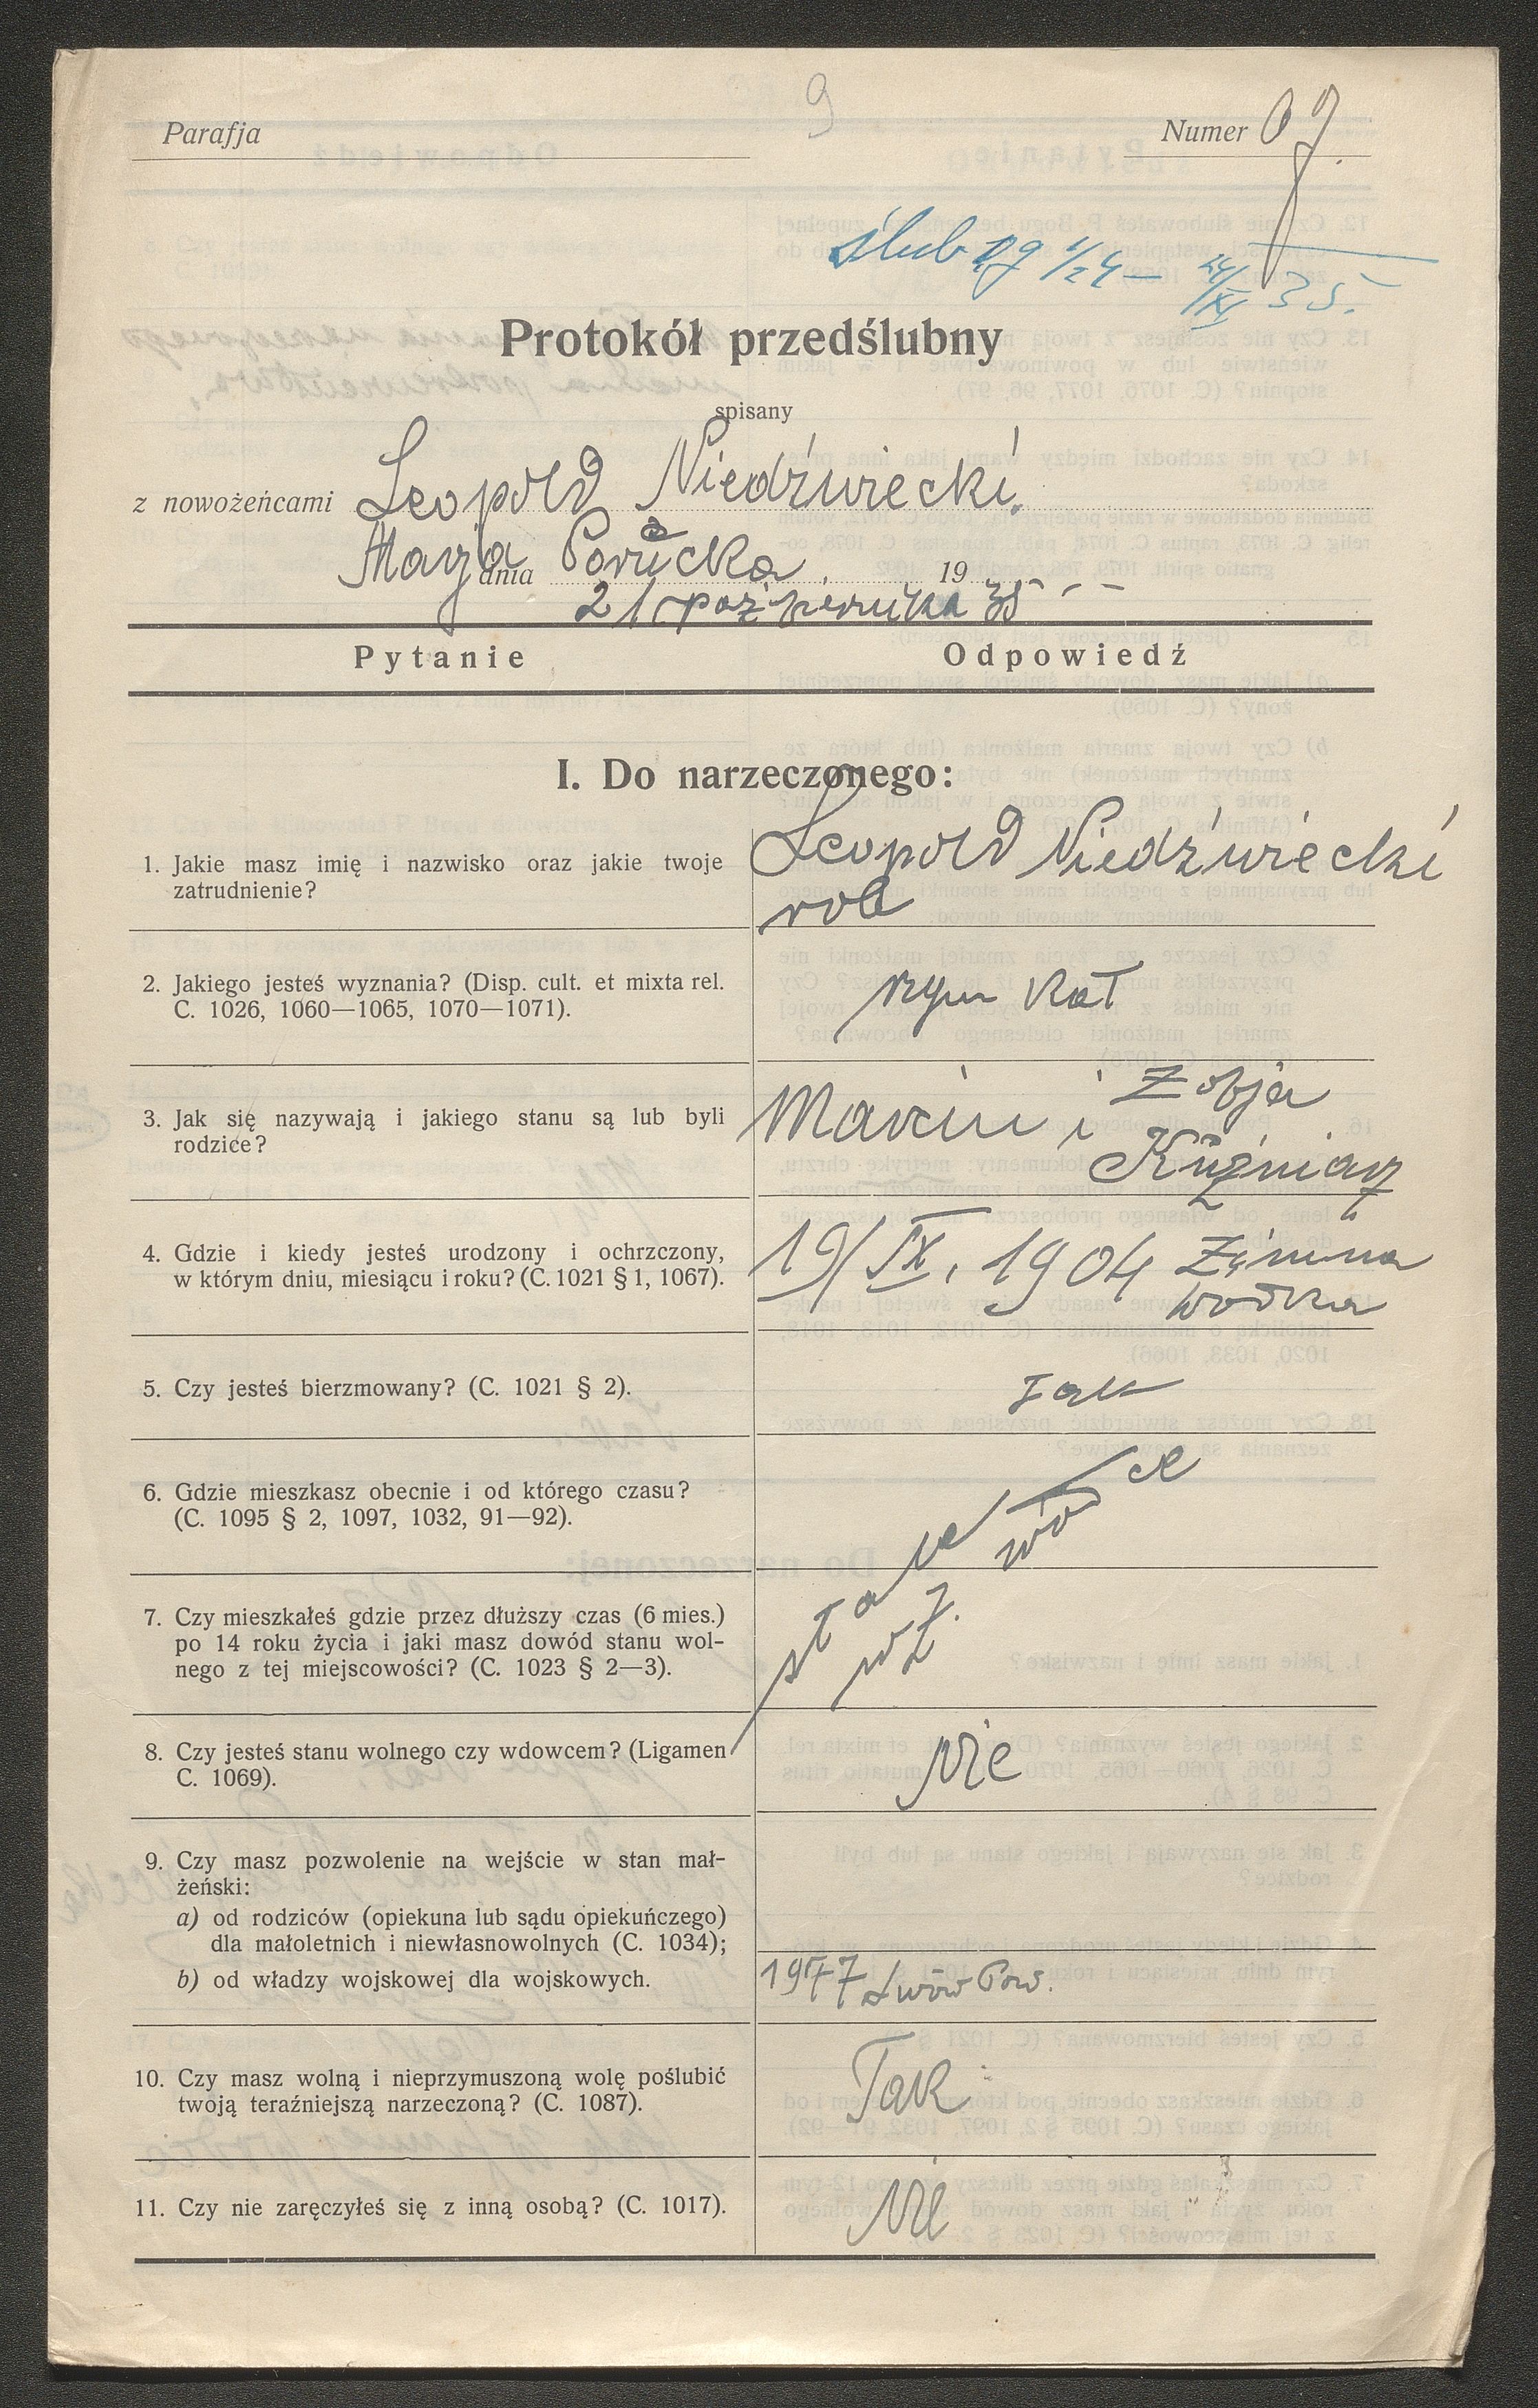 9
Parafja
Numer 09.
ślub 19 1/24 — 24/XI 35.
Protokół przedślubny
spisany
z nowożeńcami Leopold Niedźwiecki.
Marja Porucka
dnia 21 październka 1935
Pytanie Odpowiedź
I. Do narzeczonego:
1. Jakie masz imię i nazwisko oraz jakie twoje
zatrudnienie?
Leopold Niedźwiecki
rol
2. Jakiego jesteś wyznania? (Disp. cult. et mixta rel.
C. 1026, 1060—1065, 1070—1071).
rzym kat
3. Jak się nazywają i jakiego stanu są lub byli
rodzice?
Marcin i Zofja
Kuźniarz
4. Gdzie i kiedy jesteś urodzony i ochrzczony,
w którym dniu, miesiącu i roku? (C. 1021 § 1, 1067).
19/IX. 1904 Zimna
wodka
5. Czy jesteś bierzmowany? (C. 1021 § 2).
Tak
6. Gdzie mieszkasz obecnie i od którego czasu?
(C. 1095 § 2, 1097, 1032, 91—92).
7. Czy mieszkałeś gdzie przez dłuższy czas (6 mies.)
po 14 roku życia i jaki masz dowód stanu wol-
nego z tej miejscowości? (C. 1023 § 2—3).
stale
w Z. wódce
8. Czy jesteś stanu wolnego czy wdowcem? (Ligamen
C. 1069).
Nie
9. Czy masz pozwolenie na wejście w stan mał-
żeński:
a) od rodziców (opiekuna lub sądu opiekuńczego)
dla małoletnich i niewłasnowolnych (C. 1034);
b) od władzy wojskowej dla wojskowych.
1977 Lwów Pow.
10. Czy masz wolną i nieprzymuszoną wolę poślubić
twoją teraźniejszą narzeczoną? (C. 1087).
Tak
11. Czy nie zaręczyłeś się z inną osobą? (C. 1017).
Nie